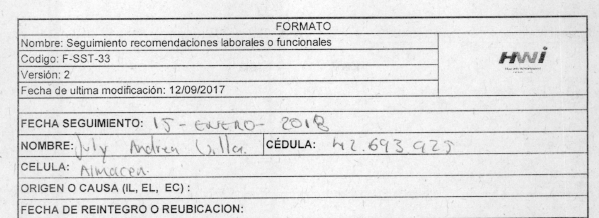 FORMATO
Nombre: Seguimiento recomendaciones laborales o funcionales
Codigo: F-SST-33
HWI
Versión: 2
Fecha de ultima modificación: 12/09/2017
FECHA SEGUIMIENTO: 15 - ENERO - 2018
NOMBRE: July Andrea Villa. CÉDULA: 42.693.925
CELULA: Almacen.
ORIGEN O CAUSA (IL, EL, EC) :
FECHA DE REINTEGRO O REUBICACION: